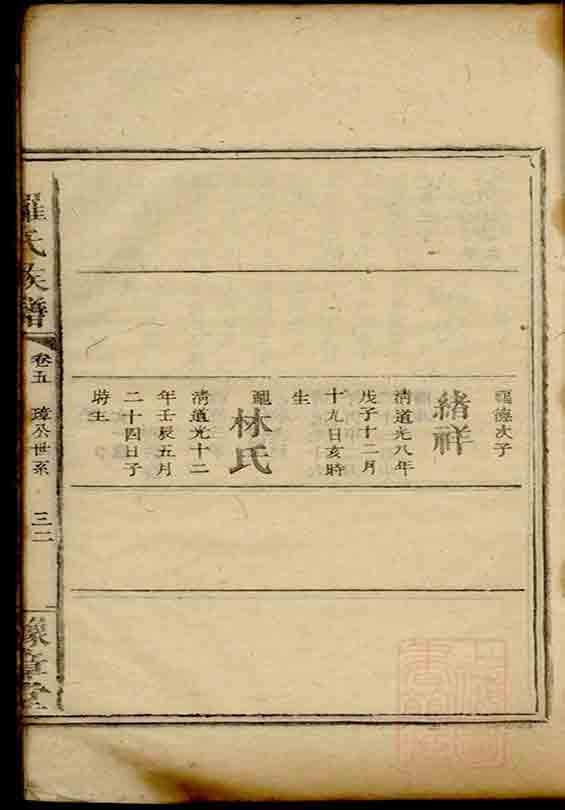 福德次子
緒祥
清道光八年
戊子十二月
十九日亥時
生
配
林氏
清道光十二
年壬辰五月
二十四日子
時生
羅氏族譜
卷五 璋公世系 三二
豫章堂